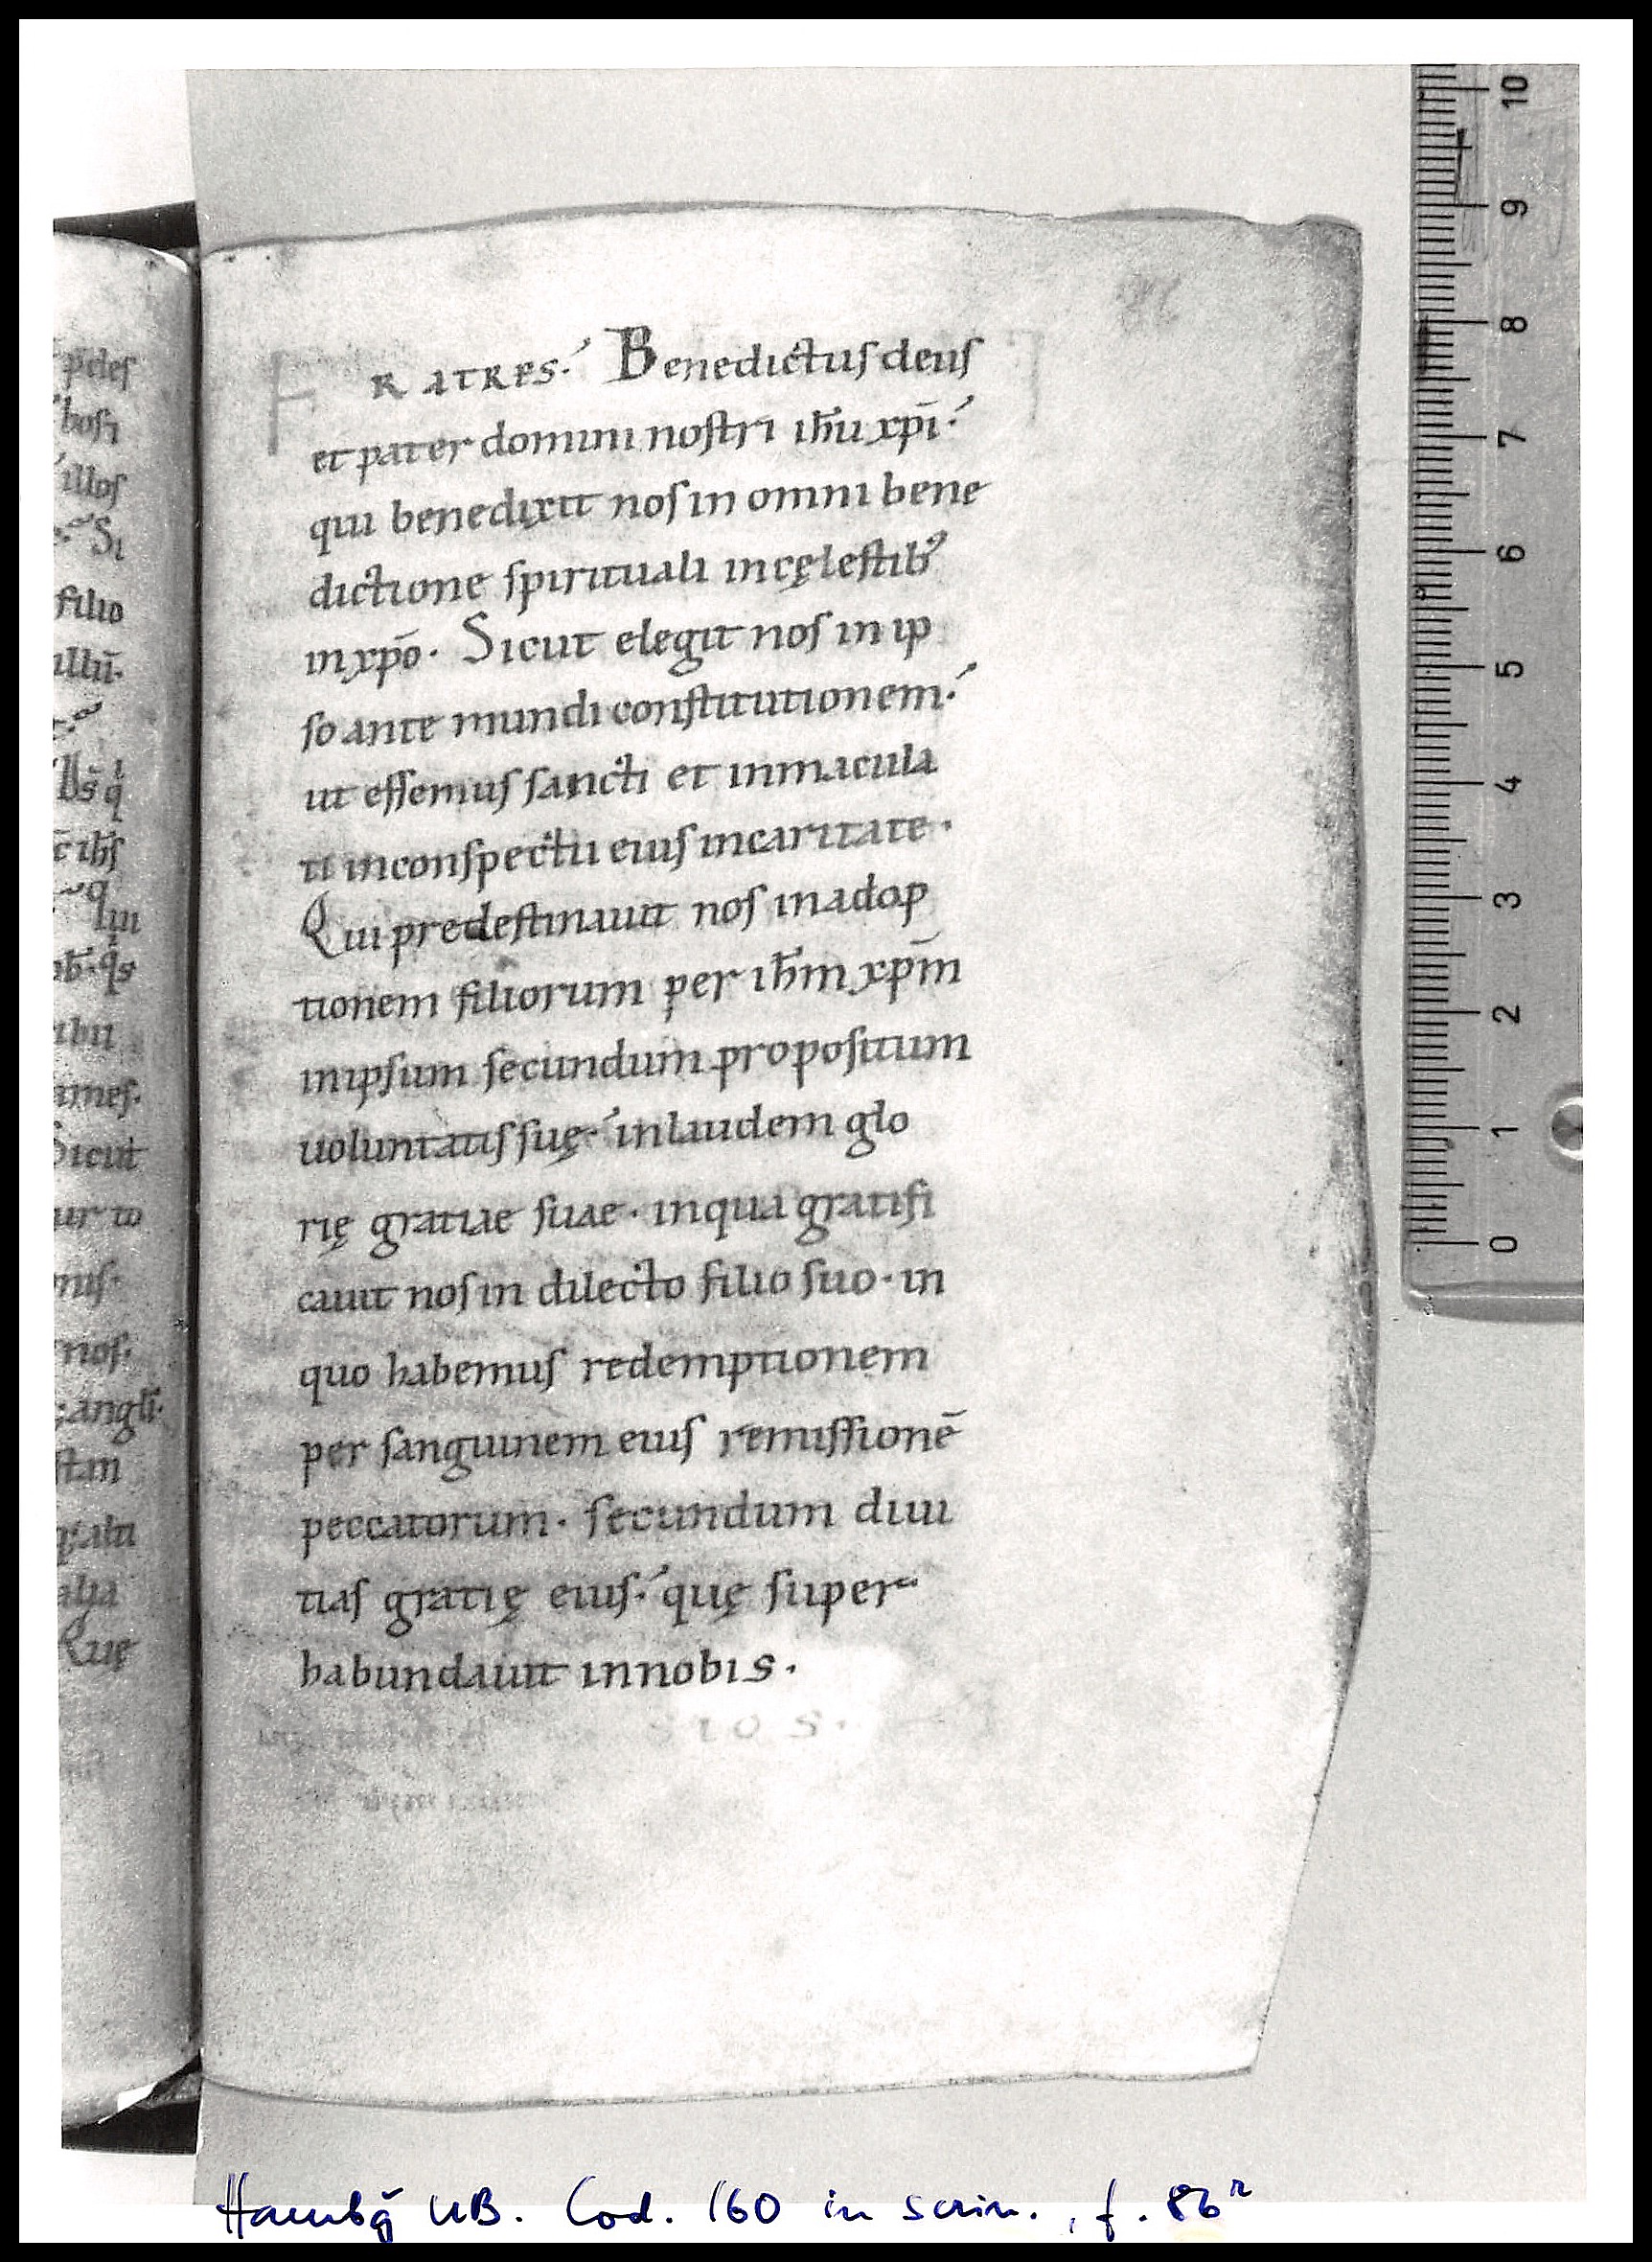 peles
bosti
illos
Si
filio
illū.
ihs
ibu
ames.
Sicut
nos.
angli.
alia
Quę
86
FRATRES. Benedictus deus
et pater domini nostri ihu xpi.
qui benedixit nos in omni bene
dictione spirituali in cęlestib;
in xpo. Sicut elegit nos in ip
so ante mundi constitutionem.
ut essemus sancti et inmacula
ti in conspectu eius in caritate.
Qui predestinauit nos in adop
tionem filiorum per ihm xpm
in ipsum secundum propositum
uoluntatis suę. in laudem glo
rię gratiae suae. in qua gratifi
cauit nos in dilecto filio suo. in
quo habemus redemptionem
per sanguinem eius remissionē
peccatorum. secundum diui
tias gratię eius. quę super
habundauit in nobis.
10
9
8
7
6
5
4
3
2
1
0
Hambg UB. Cod. 160 in scrin., f. 86r